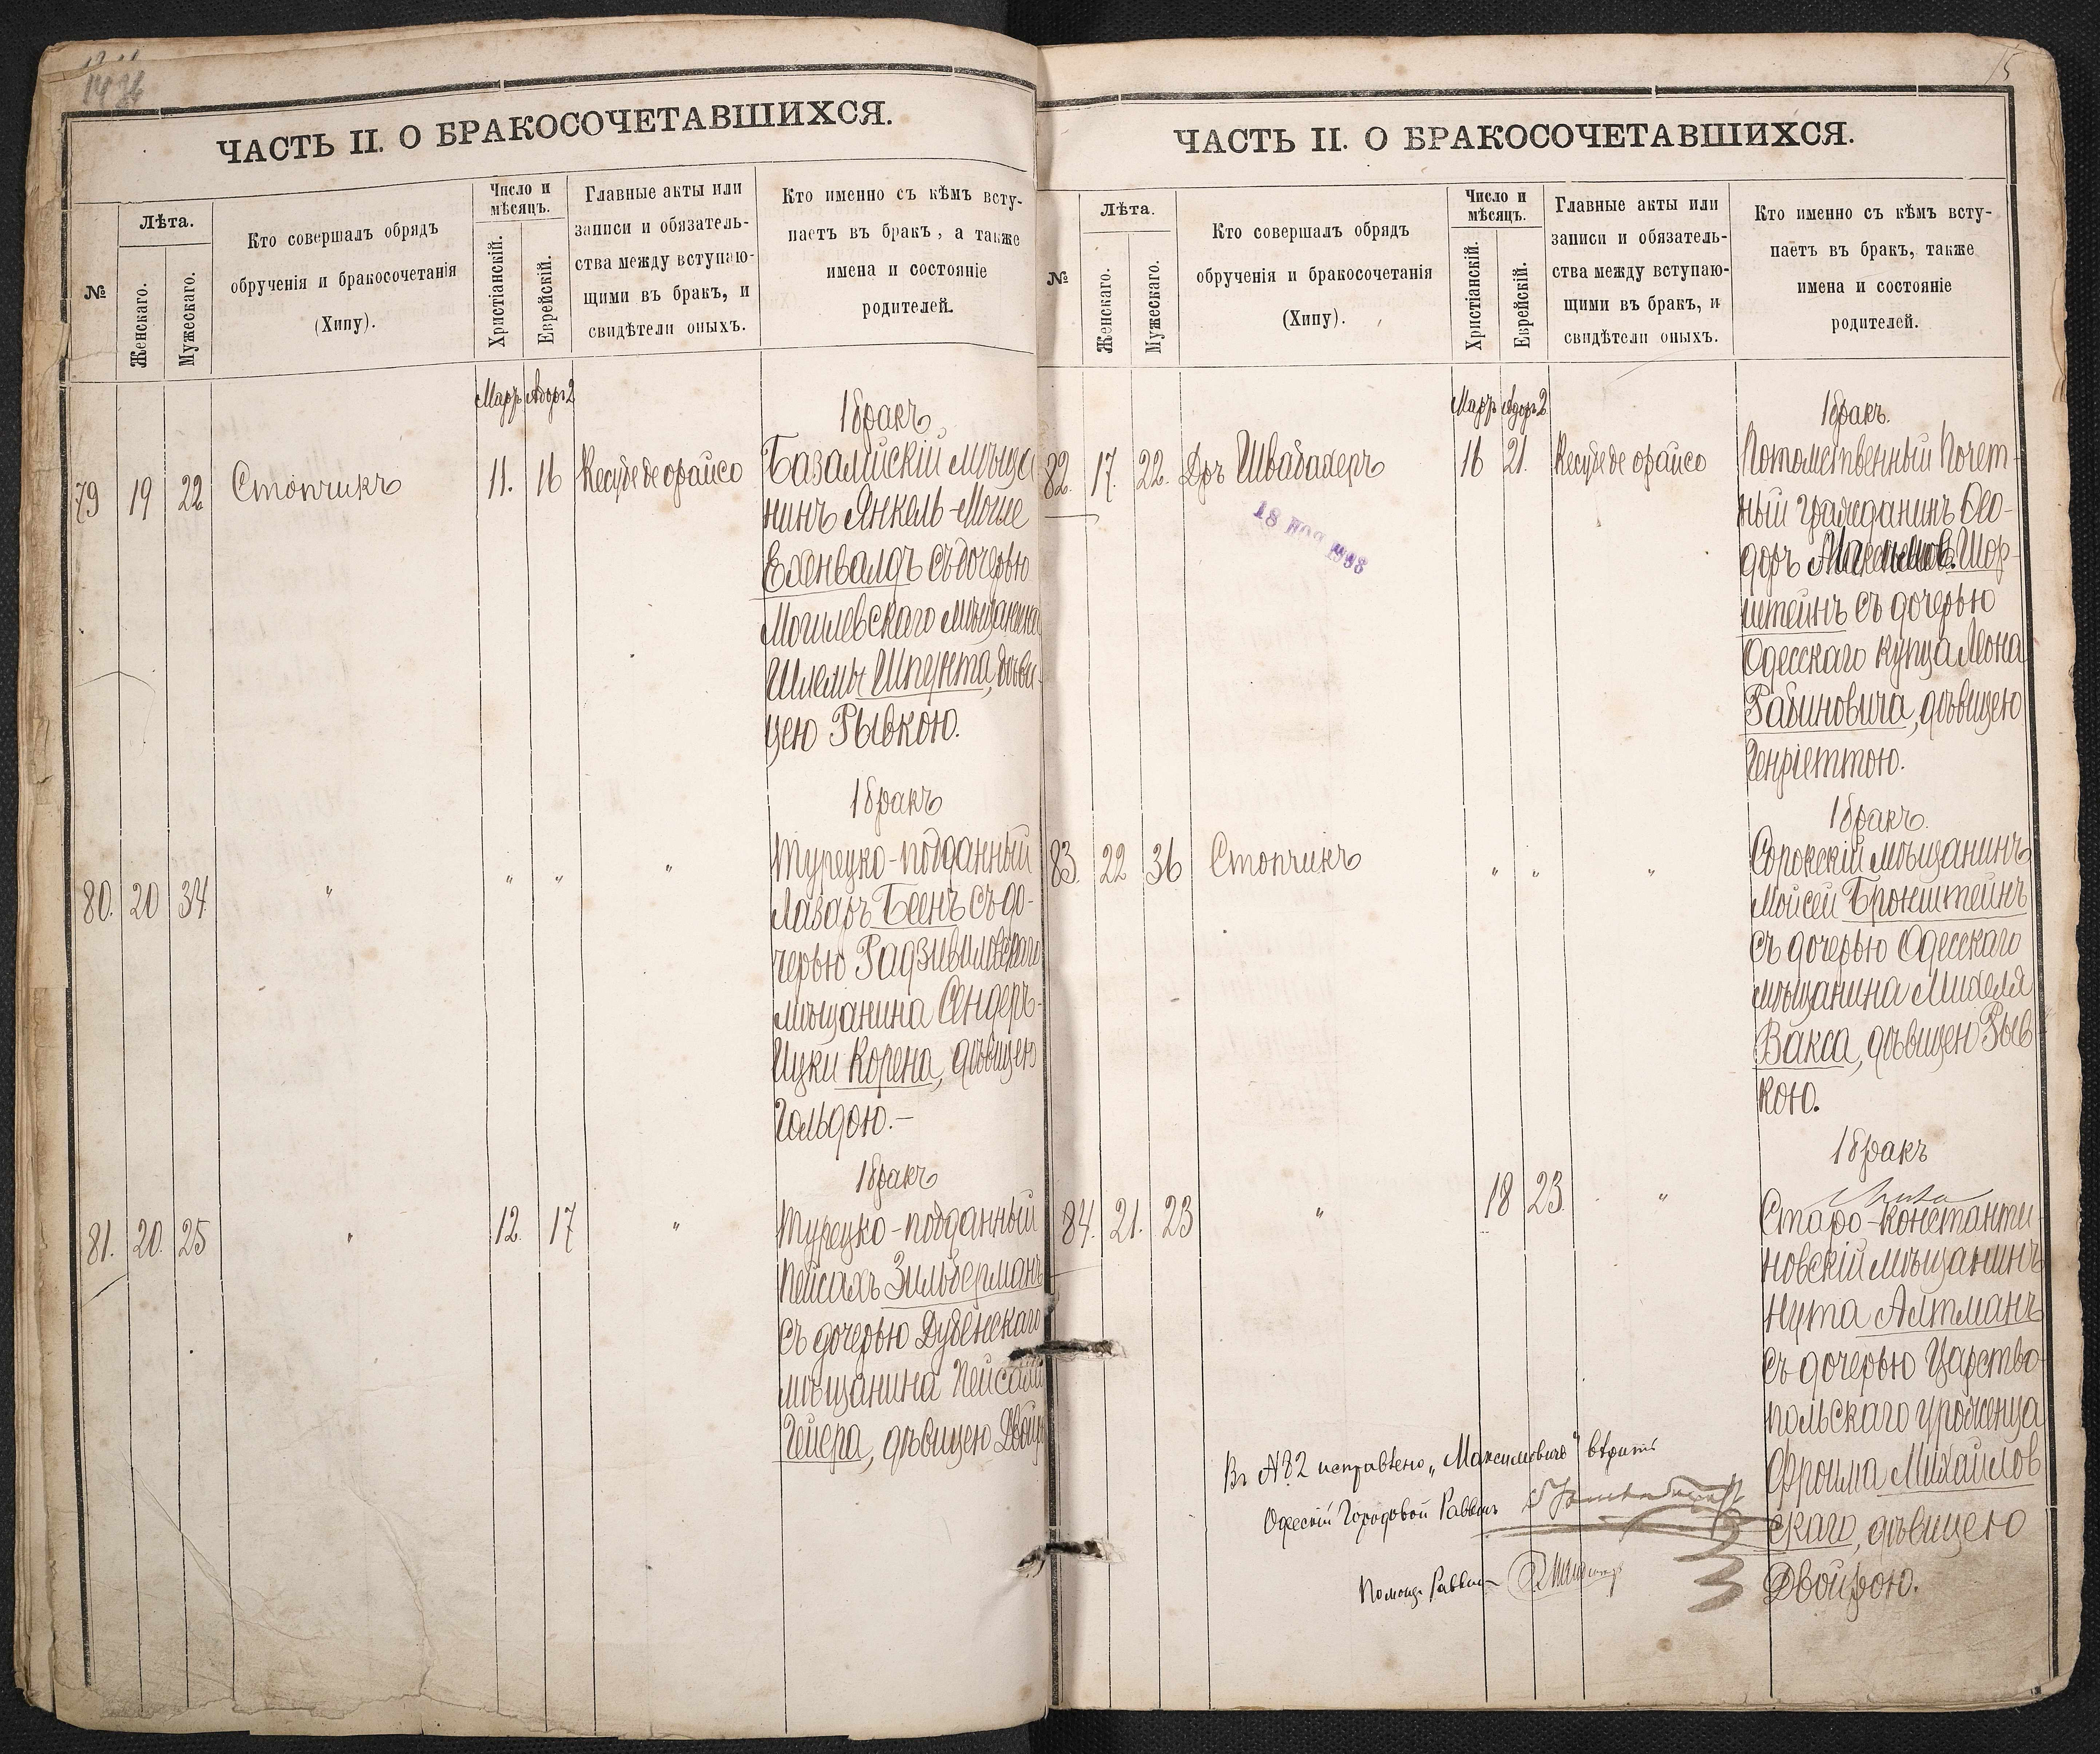 ЧАСТЬ II. О БРАКОСОЧЕТАВШИХСЯ.
№
Лѣта.
Женскаго.
Мужескаго.
Кто совершалъ обрядъ
обрученія и бракосочетанія
(Хипу).
Число и
мѣсяцъ.
Христіанскій.
Еврейскій.
Главные акты или
записи и обязатель-
ства между вступаю-
щими въ бракъ, и
свидѣтели оныхъ.
Кто именно съ кѣмъ всту-
паетъ въ бракъ, а также
имена и состояніе
родителей.
Мартъ Адоръ 2
1 бракъ
79 19 22 Стопчикъ 11. 16 Кесубе де орайсо
Базалійскій мѣща
нинъ Янкель-Мойше
Ехенвалдъ съ дочерью
Могилевскаго мѣщанина
Шлемы Шпунта, дѣви-
цею Рывкою.
1 бракъ
80. 20 34. " " " "
Турецко-подданный
Лазарь Беенъ съ до-
черью Радзивиловскаго
мѣщанина Сендеръ-
Ицки Корена, дѣвицею
Гольдою.—
1 бракъ
81. 20. 25 " 12. 17 "
Турецко-подданный
Пейсахъ Зильберманъ
съ дочерью Дубенскаго
мѣщанина Пейсаха
Гейера, дѣвицею
15
ЧАСТЬ II. О БРАКОСОЧЕТАВШИХСЯ.
№
Лѣта.
Женскаго.
Мужескаго.
Кто совершалъ обрядъ
обрученія и бракосочетанія
(Хипу).
Число и
мѣсяцъ.
Христіанскій.
Еврейскій.
Главные акты или
записи и обязатель-
ства между вступаю-
щими въ бракъ, и
свидѣтели оныхъ.
Кто именно съ кѣмъ всту-
паетъ въ бракъ, также
имена и состояніе
родителей.
Мартъ Адоръ 2
1 бракъ.
82. 17. 22. Дръ Швабахеръ 16 21. Кесубе де орайсо
18 НОЯ 1908
Потомственный Почет-
ный гражданинъ Ѳео-
доръ Шор-
штейнъ съ дочерью
Одесскаго купца Леона
Рабиновича, дѣвицею
Генріеттою.
1 бракъ.
83. 22 36 Стопчикъ " " "
Сорокскій мѣщанинъ
Мойсей Бронштейнъ
съ дочерью Одесскаго
мѣщанина Михеля
Вакса, дѣвицею Рыв
кою.
1 бракъ
84. 21. 23 " 18 23. "
Старо-Константи-
новскій мѣщанинъ
Нута Алтманъ
съ дочерью Царства
польскаго уроженца
Фроима Михайлов
скаго, дѣвицею
Двойрою.
Въ №82 исправлено „Максимовичъ" вѣрить
Одесскій Городовой Раввинъ
Помощ. Раввина